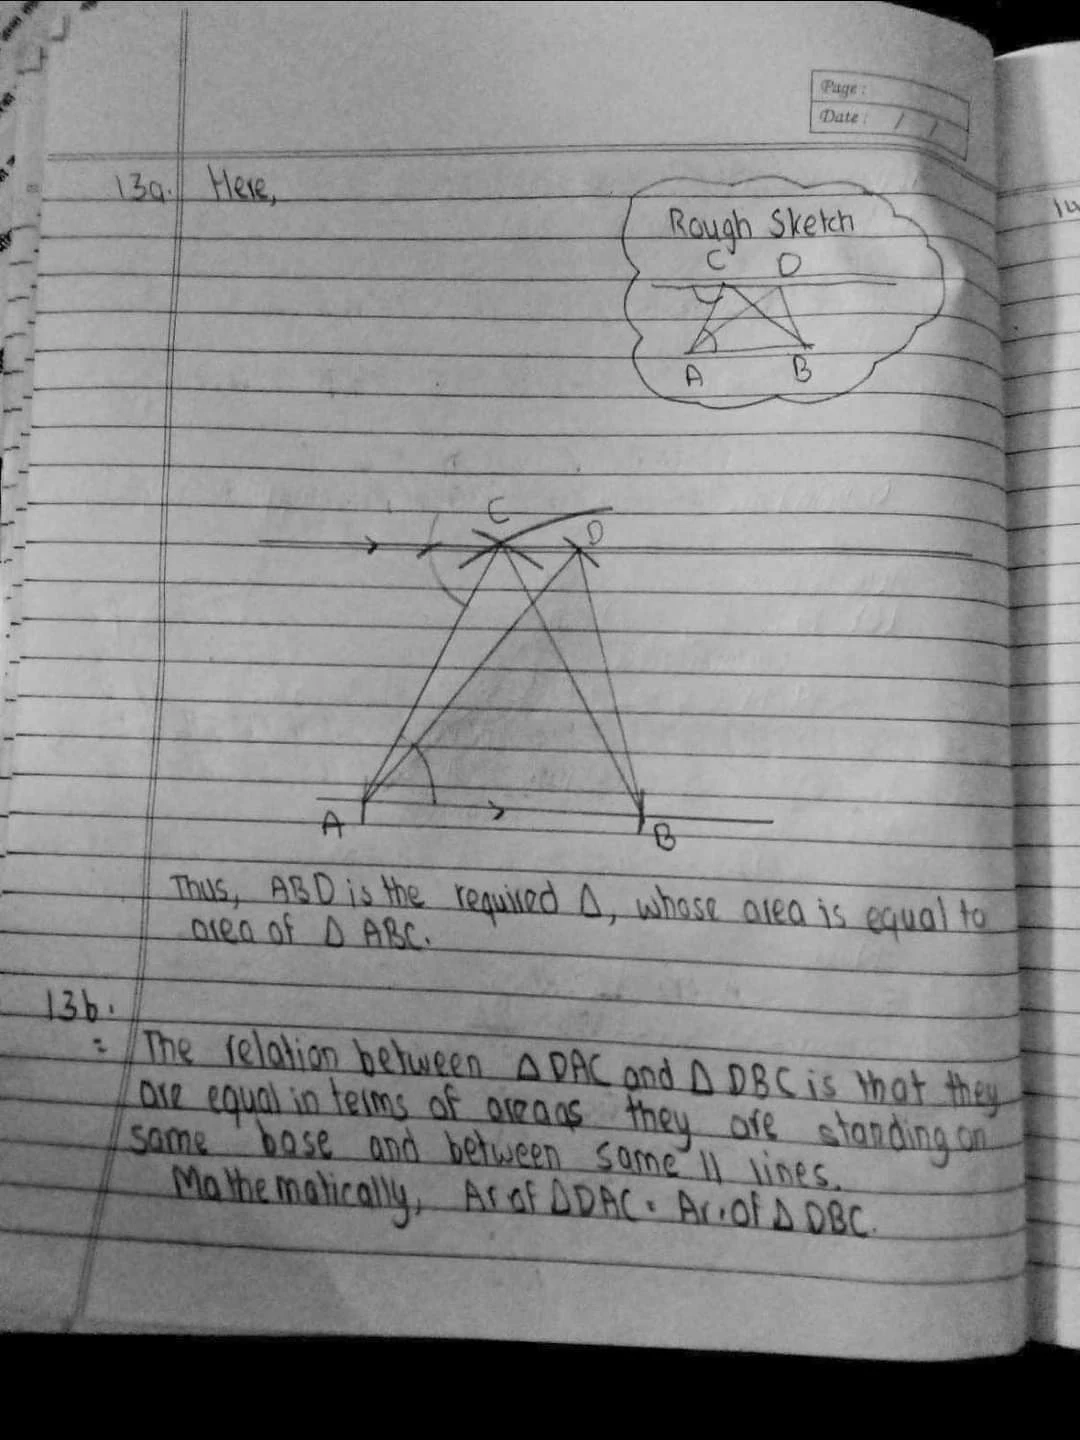 Page :
Date : / /
13a. Here,
Rough Sketch
C D
A B
C
D
A
B
Thus, ABD is the required Δ, whose area is equal to
area of Δ ABC.
13b.
= The relation between Δ DAC and Δ DBC is that they
are equal in terms of area as they are standing on
same base and between same || lines.
Mathematically, Ar of Δ DAC = Ar. of Δ DBC.